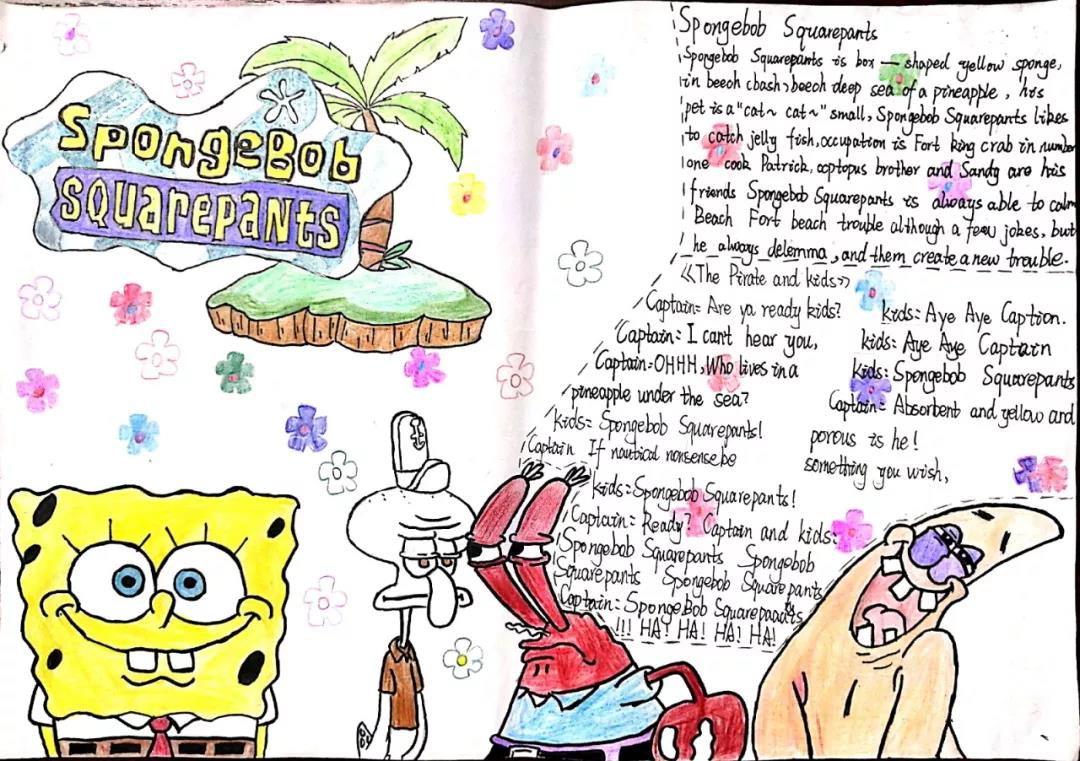 SpongeBob
SQUarePaNts
Spongebob Squarepants
Spongebob Squarepants is box — shaped yellow sponge,
in beech cbash, beech deep sea of a pineapple, his
pet is a "cat~ cat~" small, Spongebob Squarepants likes
to catch jelly fish, occupation is Fort king crab in number
one cook Patrick, optopus brother and Sandy are his
friends Spongebob Squarepants is always able to calm
Beach Fort beach trouble although a few jokes, but
he always delemma, and them create a new trouble.
《The Pirate and kids》
Captain: Are ya ready kids? kids: Aye Aye Caption.
Captain: I can't hear you, kids: Aye Aye Captain
Captain: OHHH, Who lives in a
pineapple under the sea? kids: Spongebob Squarepants
Captain: Absorbent and yellow and
porous is he!
kids: Spongebob Squarepants!
Captain If nautical nonsense be
something you wish,
kids: Spongebob Squarepants!
Captain: Ready? Captain and kids:
Spongebob Squarepants Spongebob
Squarepants Spongebob Squarepants
Captain: SpongeBob Squarepants
!!! HA! HA! HA! HA!